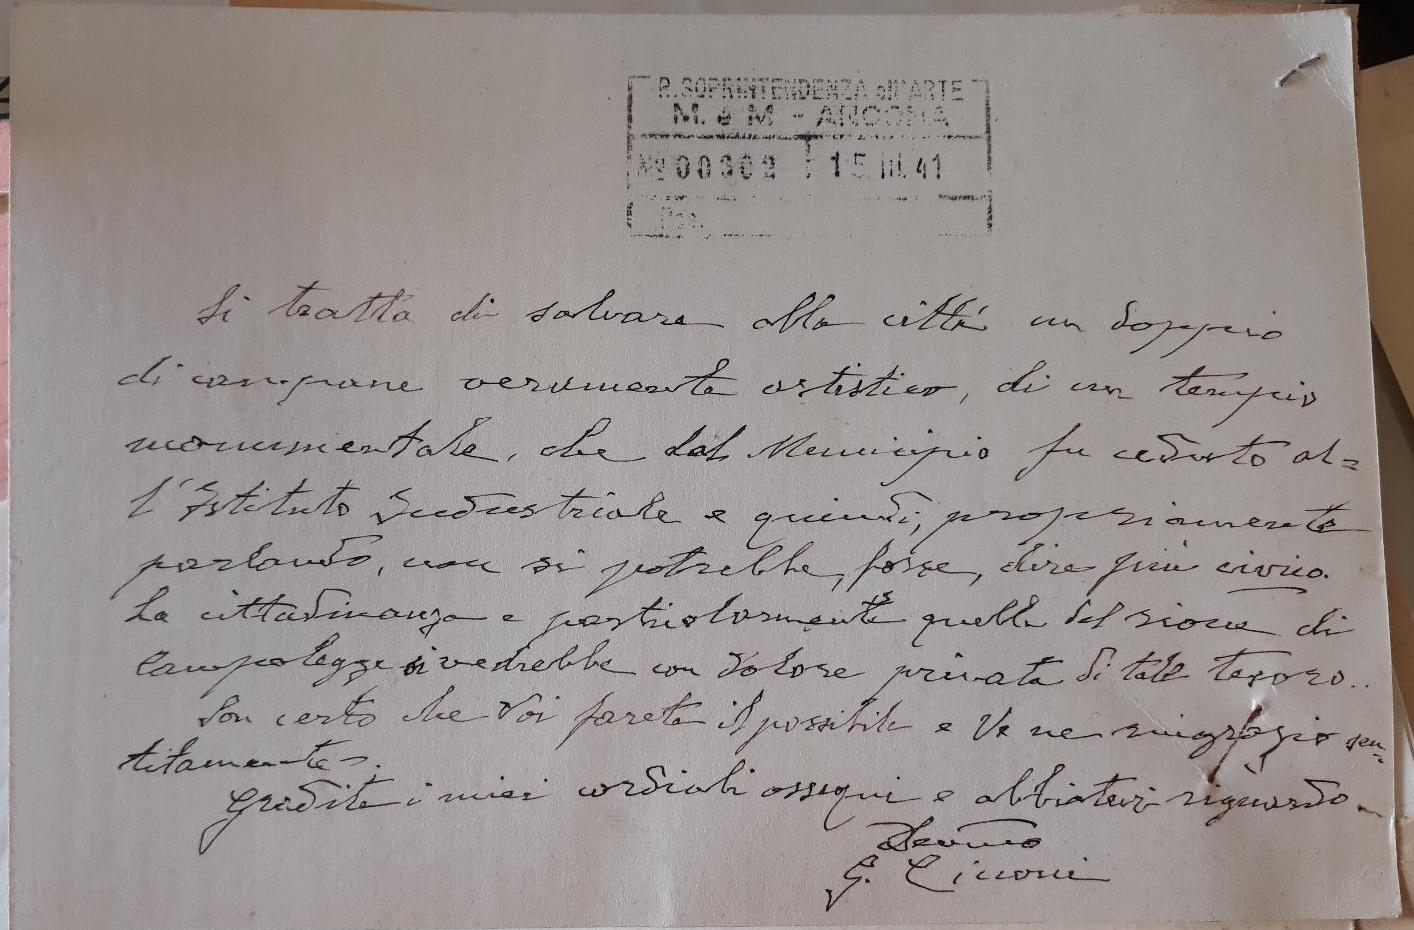 R. SOPRINTENDENZA all'ARTE
M. e M - ANCONA
No 00302 15. III. 41
Pos.
Si tratta di salvare alla città un doppio
di campane veramente artistico, di un tempio
monumentale, che dal Municipio fu ceduto al=
l'Istituto Industriale e quindi, propriamente
parlando, non si potrebbe, forse, dire più civico.
La cittadinanza e particolarmente quella del rione di
Campolegge si vedrebbe con dolore privata di tale tesoro..
Son certo che Voi farete il possibile e Ve ne ringrazio sen=
titamente.
Gradite i miei cordiali ossequi e abbiatemi riguardo.
Devmo
G. Cicconi